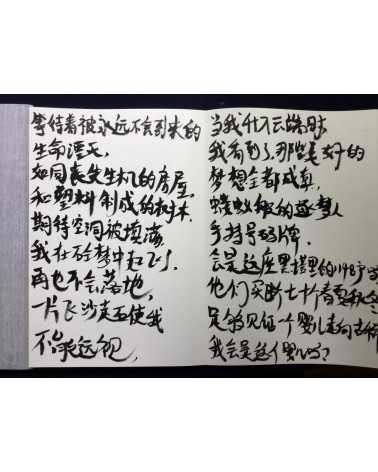 等待着被永远不会到来的
生命浇灭,
如同丧失生机的房屋,
和塑料制成的树木.
期待空洞被填满,
我在砂梦中起飞了.
再也不会落地,
一片飞沙走石使我
不能永远视,
当我升入云端时,
我看到了那些美好的
梦想全都成真,
蝼蚁般的逐梦人
手持号码牌.
会是这座黑塔里的1987
他们买断七十个春夏秋冬
足够见证一个婴儿走向
我会是这个婴儿吗?